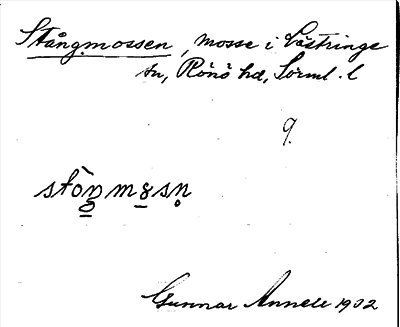 Stångmossen, mosse i Västringe
sn, Rönö hd, Sörml. l
9.
Gunnar Annell 1902